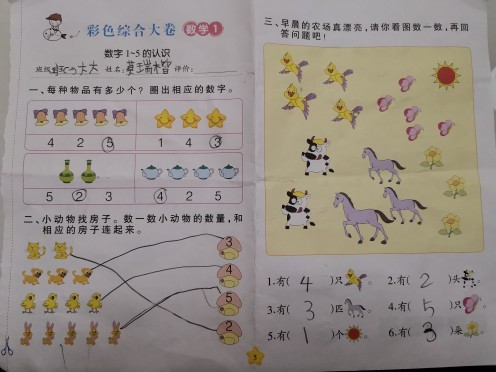 彩色综合大卷 数学1
数字1~5的认识
班级: 大大 姓名: 莫瑞楷 评价:
一、每种物品有多少个？圈出相应的数字。
4 2 5 1 4 3
5 2 3 4 2 5
二、小动物找房子。数一数小动物的数量，和
相应的房子连起来。
3
4
5
2
三、早晨的农场真漂亮，请你看图数一数，再回
答问题吧！
1.有( 4 )只。 2.有( 2 )头。
3.有( 3 )匹。 4.有( 5 )只。
5.有( 1 )个。 6.有( 3 )朵。
3